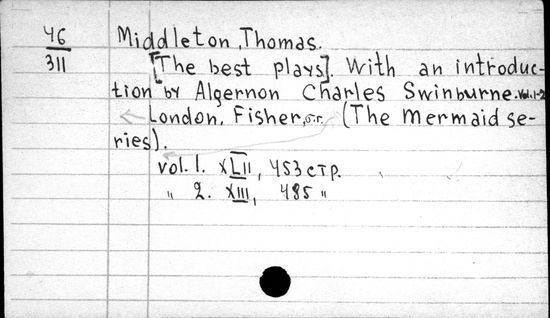 46
311
Middleton, Thomas.
[The best plays]. With an introduc-
tion by Algernon Charles Swinburne. Vol. 1-2
London, Fisher, б.г. (The Mermaid se-
ries).
vol. 1. XLII, 453 стр.
" 2. XIII, 485 "